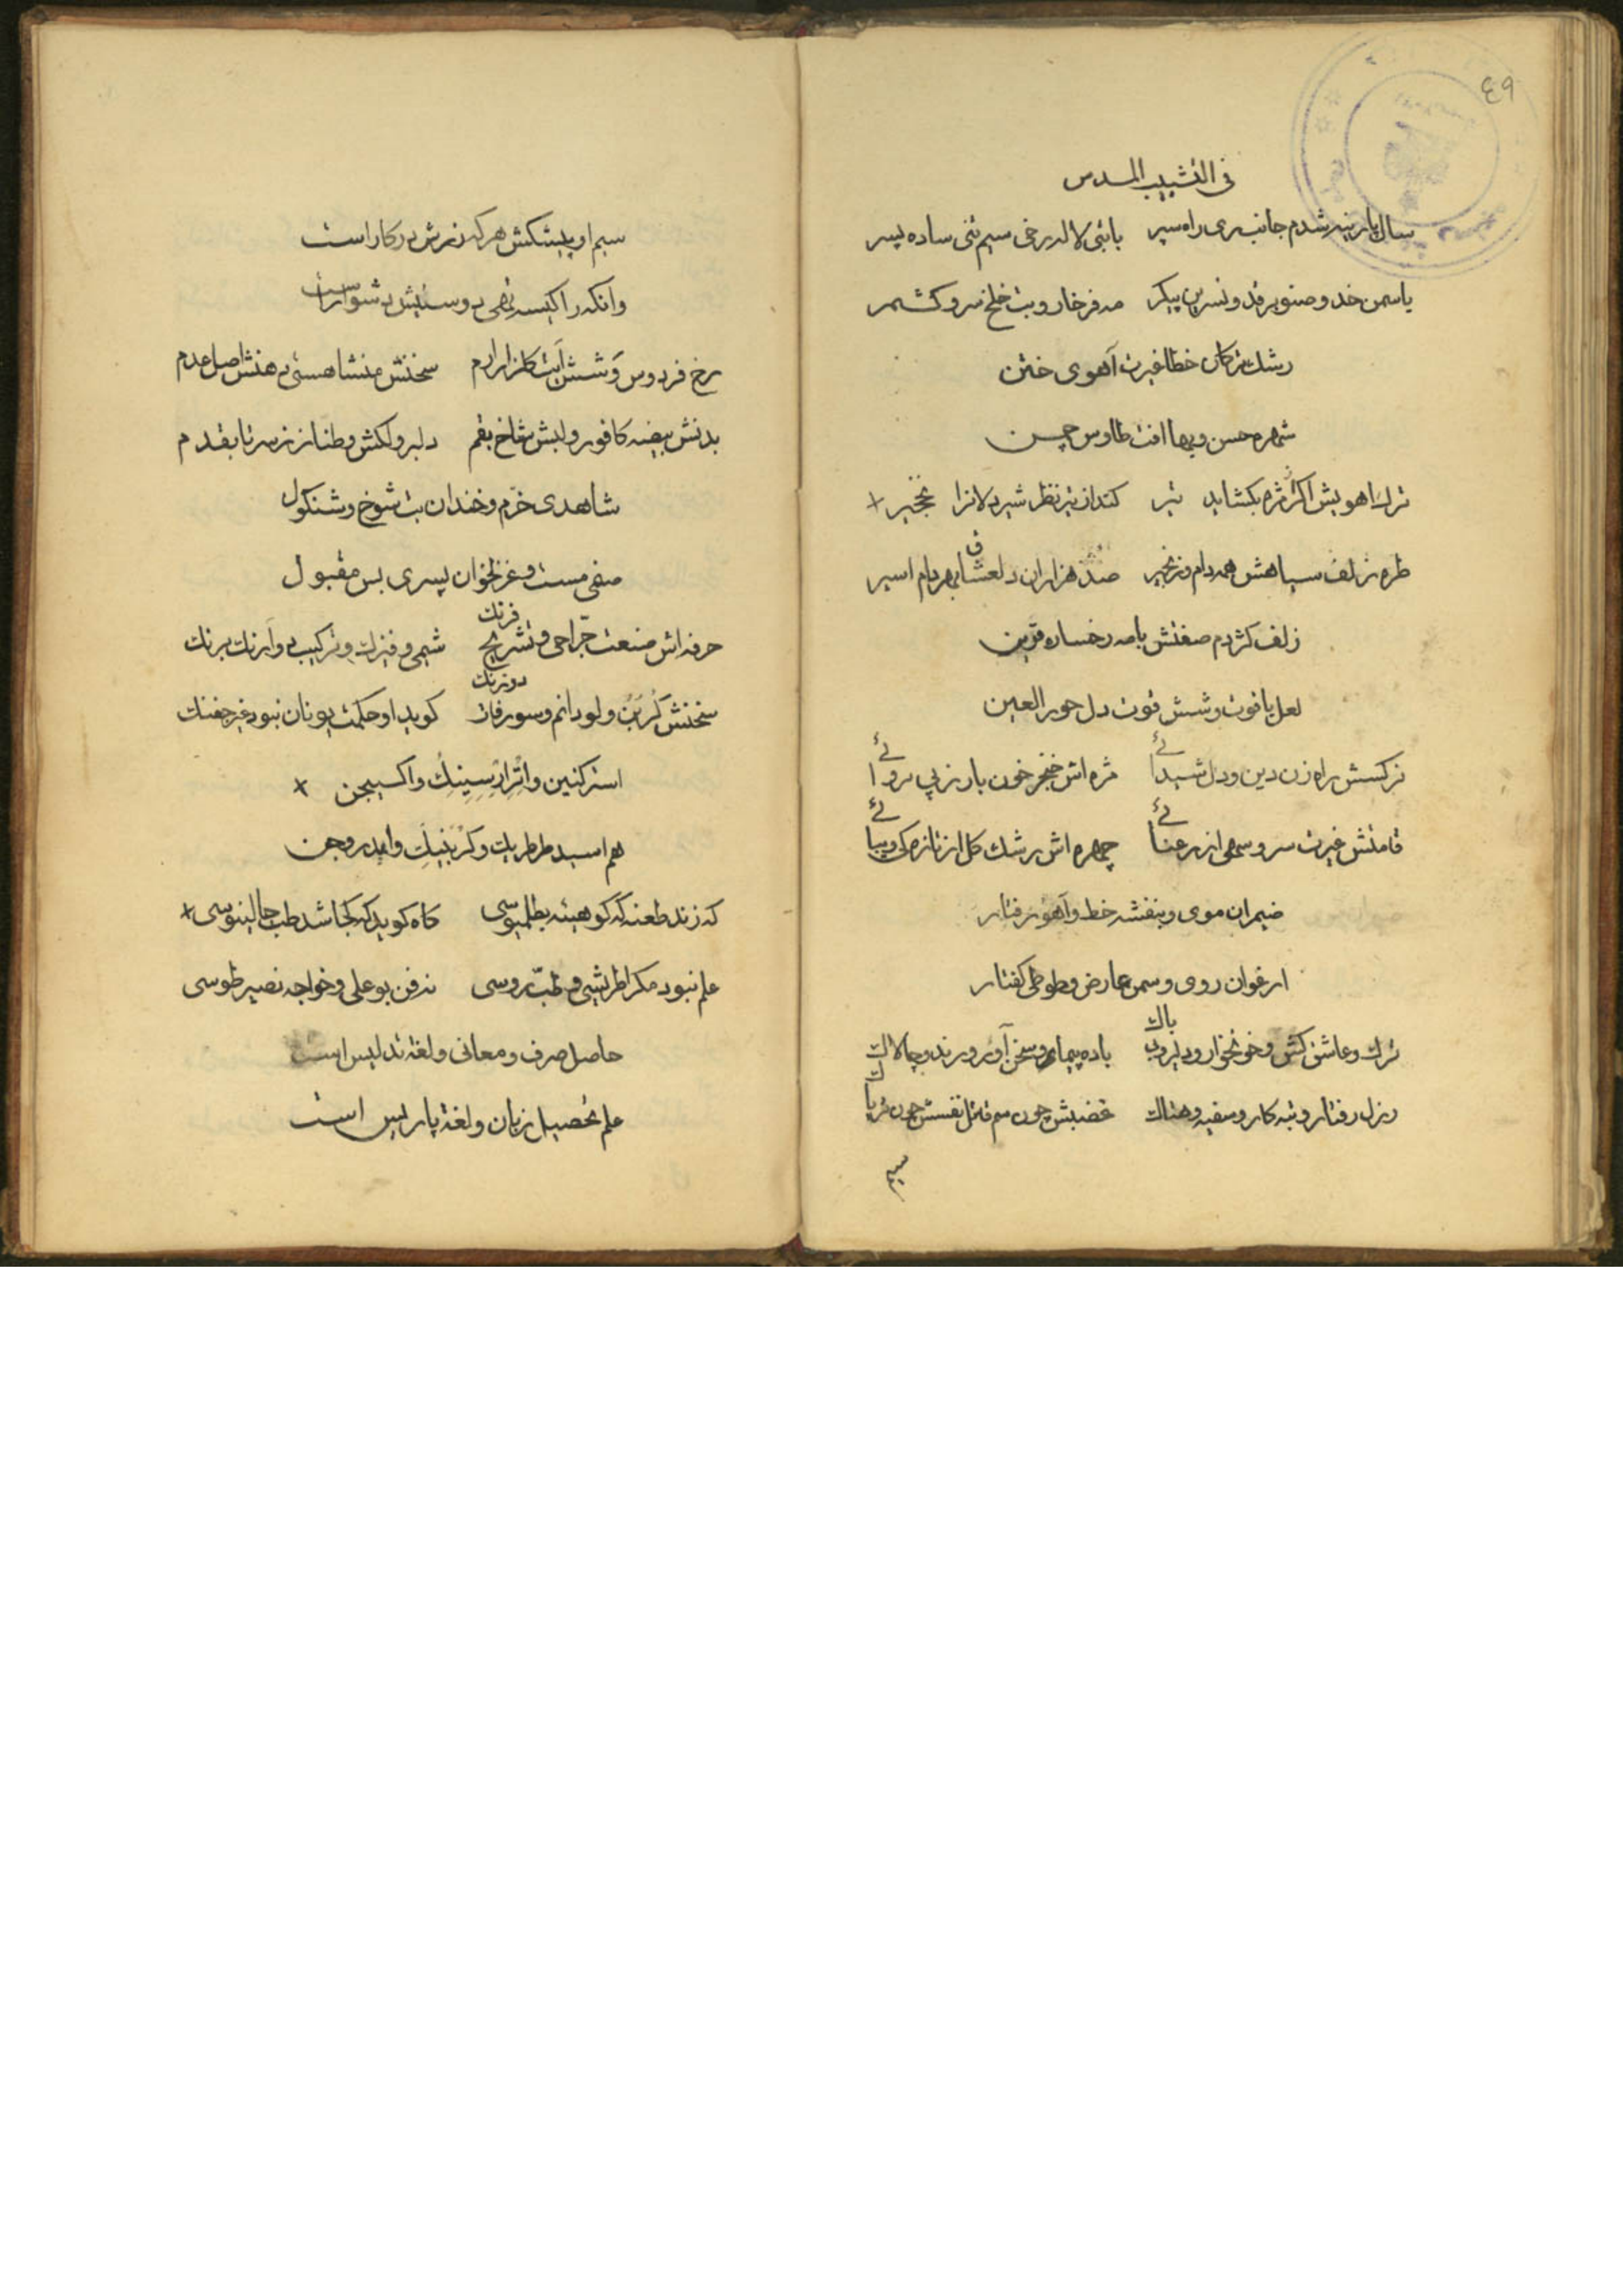 ٤٩
فی التشبیب المسدس
سال پارینه شدم جانب ری راه سپر بابتی لاله رخی سیم تنی ساده پسر
یاسمن خد و صنوبر قد و نسرین پیکر مه فرخار و بت خلخ و سرو کشمر
رشک ترکان خطا غیرت آهوی ختن
شهره حسن و بها افت طاوس چمن
ترک اهویش اکر مژه بکشاید تیر کند از تیر نظر شیردلانرا نخجیر +
طره زلف سیاهش همه دام و زنجیر صد هزاران دل عشاق بهر دام اسیر
زلف کژدم صفتش بامه رخساره قرین
لعل یاقوت وشش قوت دل حور العین
نرکسش راه زن دین و دل شیدائے مژه اش خنجر خون بار ز بی پروائے
قامتش غیرت سرو سهی از رعنائے چهره اش رشک کل از تازه کی و زیبائے
ضیمران موی و بنفشه خط و آهو رفتار
ارغوان روی و سمن عارض و طوطی کفتار
ترک و عاشق کش و خونخوار و دلیر و بی باک باده پیمای و سخن آور و رند و چالاک
رذل رفتار و تبه کار و سفیه و هتاک غضبش چون سم قتل نفسش چون تریاک
سیم
سیم او پیشکش هرکه زرش در کار است
وانکه را کیسه تهی دوستیش دشوار است
رخ فردوس وشش آیت کلزار ارم سخنش منشا هستی دهنش اصل عدم
بدنش بیضه کافور و لبش شاخ بقم دلبر و لکش و طناز ز سر تا بقدم
شاهدی خرم و خندان بت شوخ و شنکول
صنمی مست و غزلخوان پسری بس مقبول
حرفه اش صنعت جراحی و تشریح فرنک شیمی و فیزک و ترکیب و آرنک برنک
سخنش کربن و لودانم و سورفات دوزنک کوید او حکمت یونان نبود غیر جفنک
استرکنین و اترارسینیک و اکسیجن +
هم اسید طرطریک و کربنیک و ایدروجن
که زند طعنه که کو هیئه بطلمیوسی کاه کوید که کجا شد طب جالینوسی +
علم نبود مکر اطریشی و طب روسی نه فن بو علی و خواجه نصیر طوسی
حاصل صرف و معانی و لغة تدلیس است
علم تحصیل زبان و لغة پاریس است